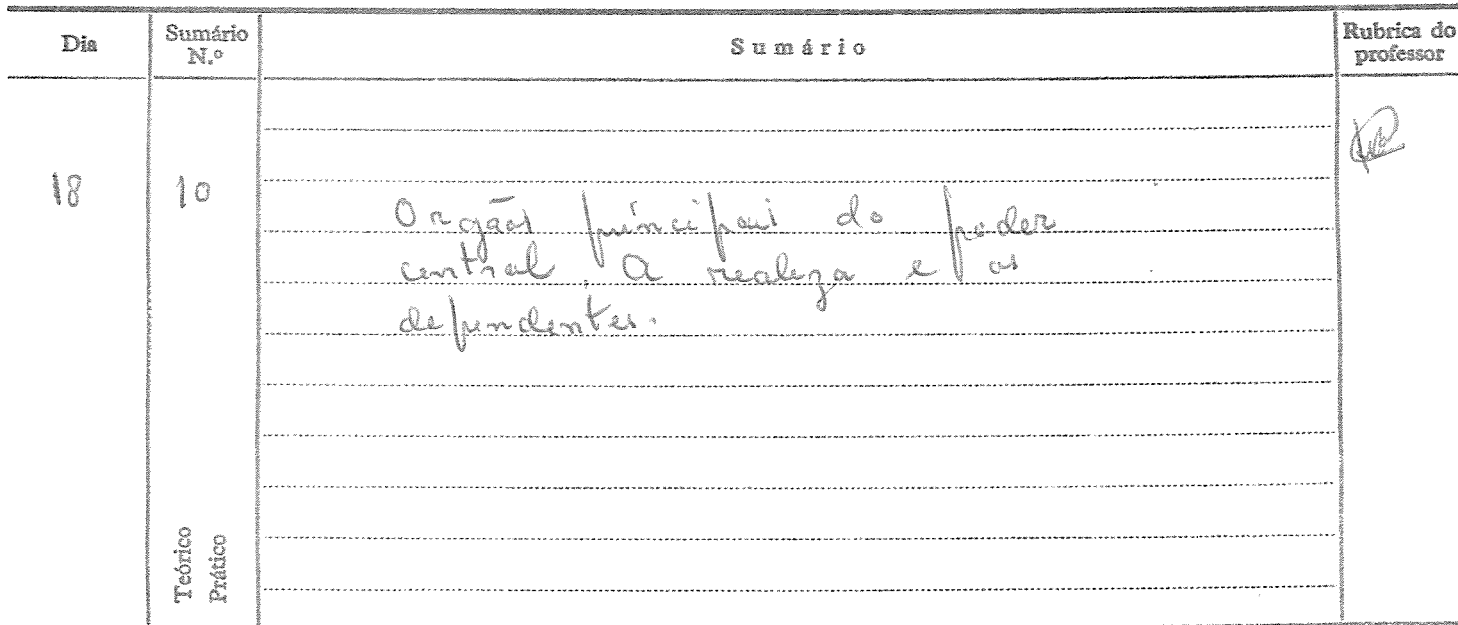 Dia
Sumário N.º
Sumário
Rubrica do professor
18
10
Orgãos principais do poder
central. A realeza e os
dependentes.
Teórico
Prático